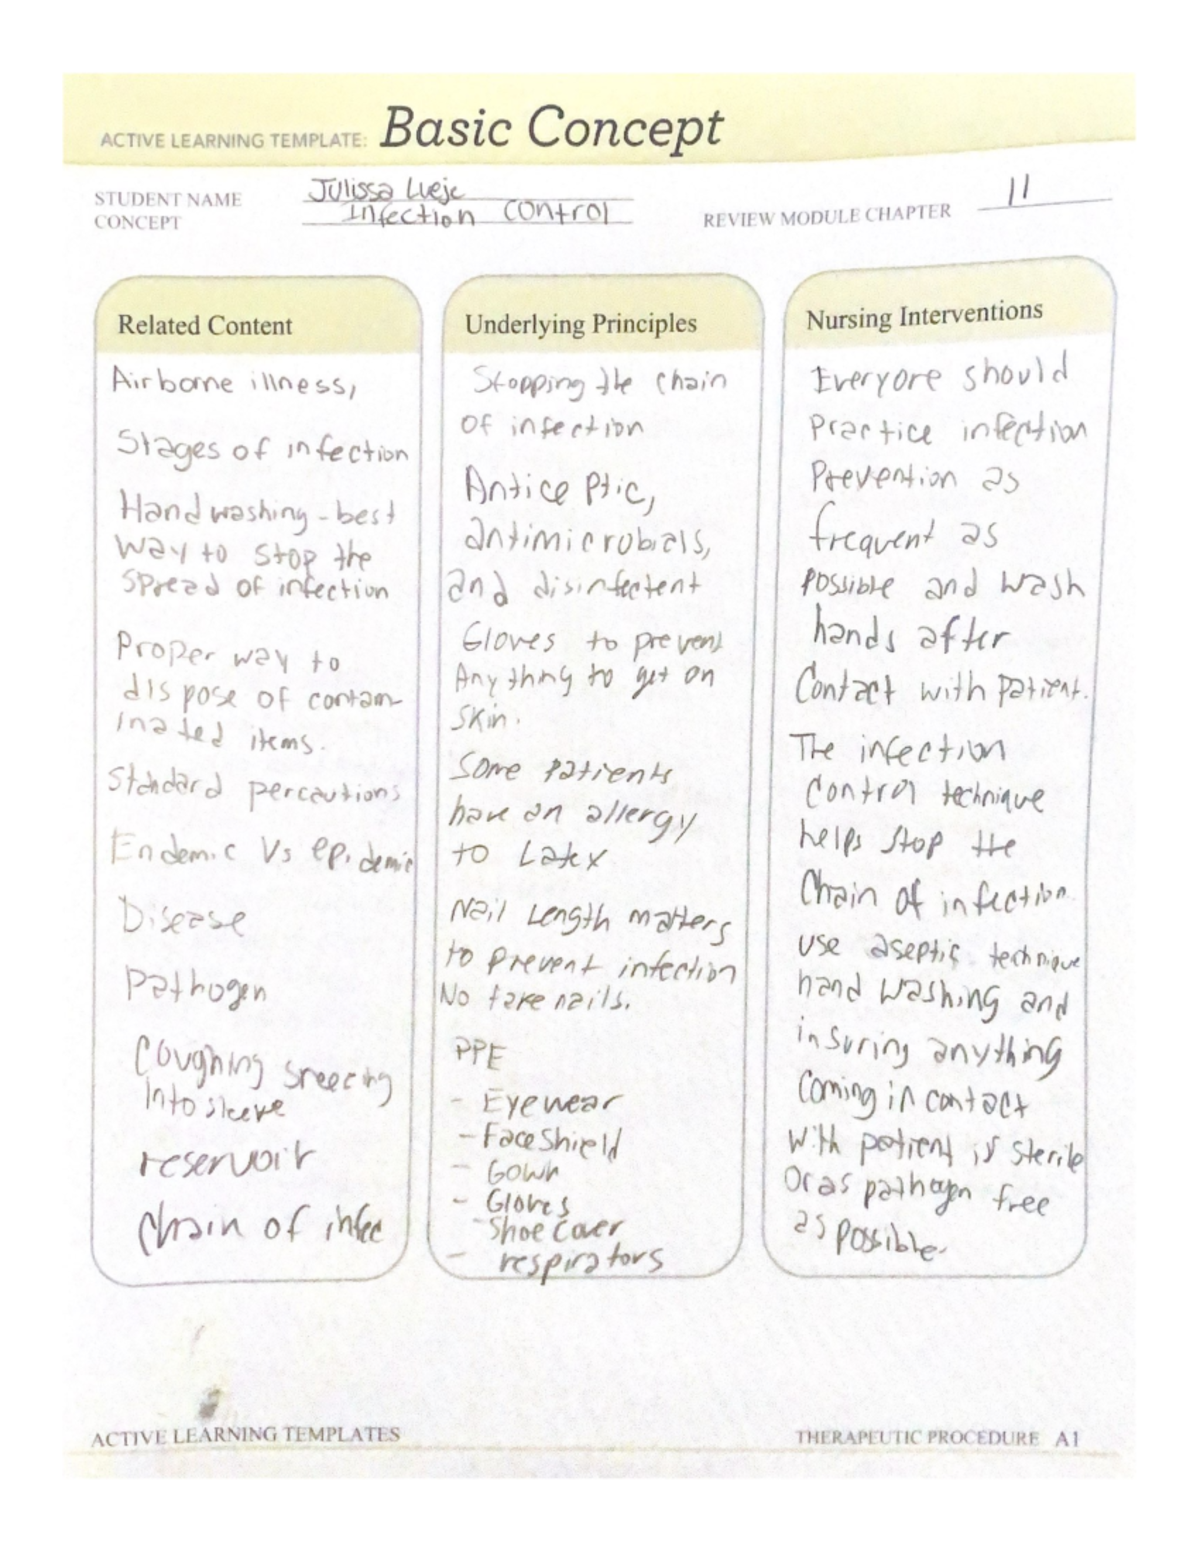 ACTIVE LEARNING TEMPLATE: Basic Concept
STUDENT NAME Julissa
CONCEPT Infection control
REVIEW MODULE CHAPTER 11
Related Content
Airborne illness,
Stages of infection
Hand washing - best
way to stop the
spread of infection
Proper way to
dispose of contam-
inated items.
Standard percautions
Endemic Vs epidemic
Disease
Pathogen
Coughing sneezing
Into sleeve
reservoir
Chain of infec
Underlying Principles
Stopping the chain
of infection
Anticeptic,
antimicrobials,
and disinfectent
Gloves to prevent
Anything to get on
skin.
Some patients
have an allergy
to Latex
Nail Length matters
to prevent infection
No fake nails.
PPE
- Eyewear
- Face Shield
- Gown
- Gloves
- Shoe cover
- respirators
Nursing Interventions
Everyone should
Practice infection
Prevention as
frequent as
possible and wash
hands after
Contact with patient.
The infection
control technique
helps stop the
Chain of infection.
use aseptic technique
hand washing and
insuring anything
coming in contact
with patient is sterile
Or as pathogen free
as possible.
ACTIVE LEARNING TEMPLATES
THERAPEUTIC PROCEDURE A1